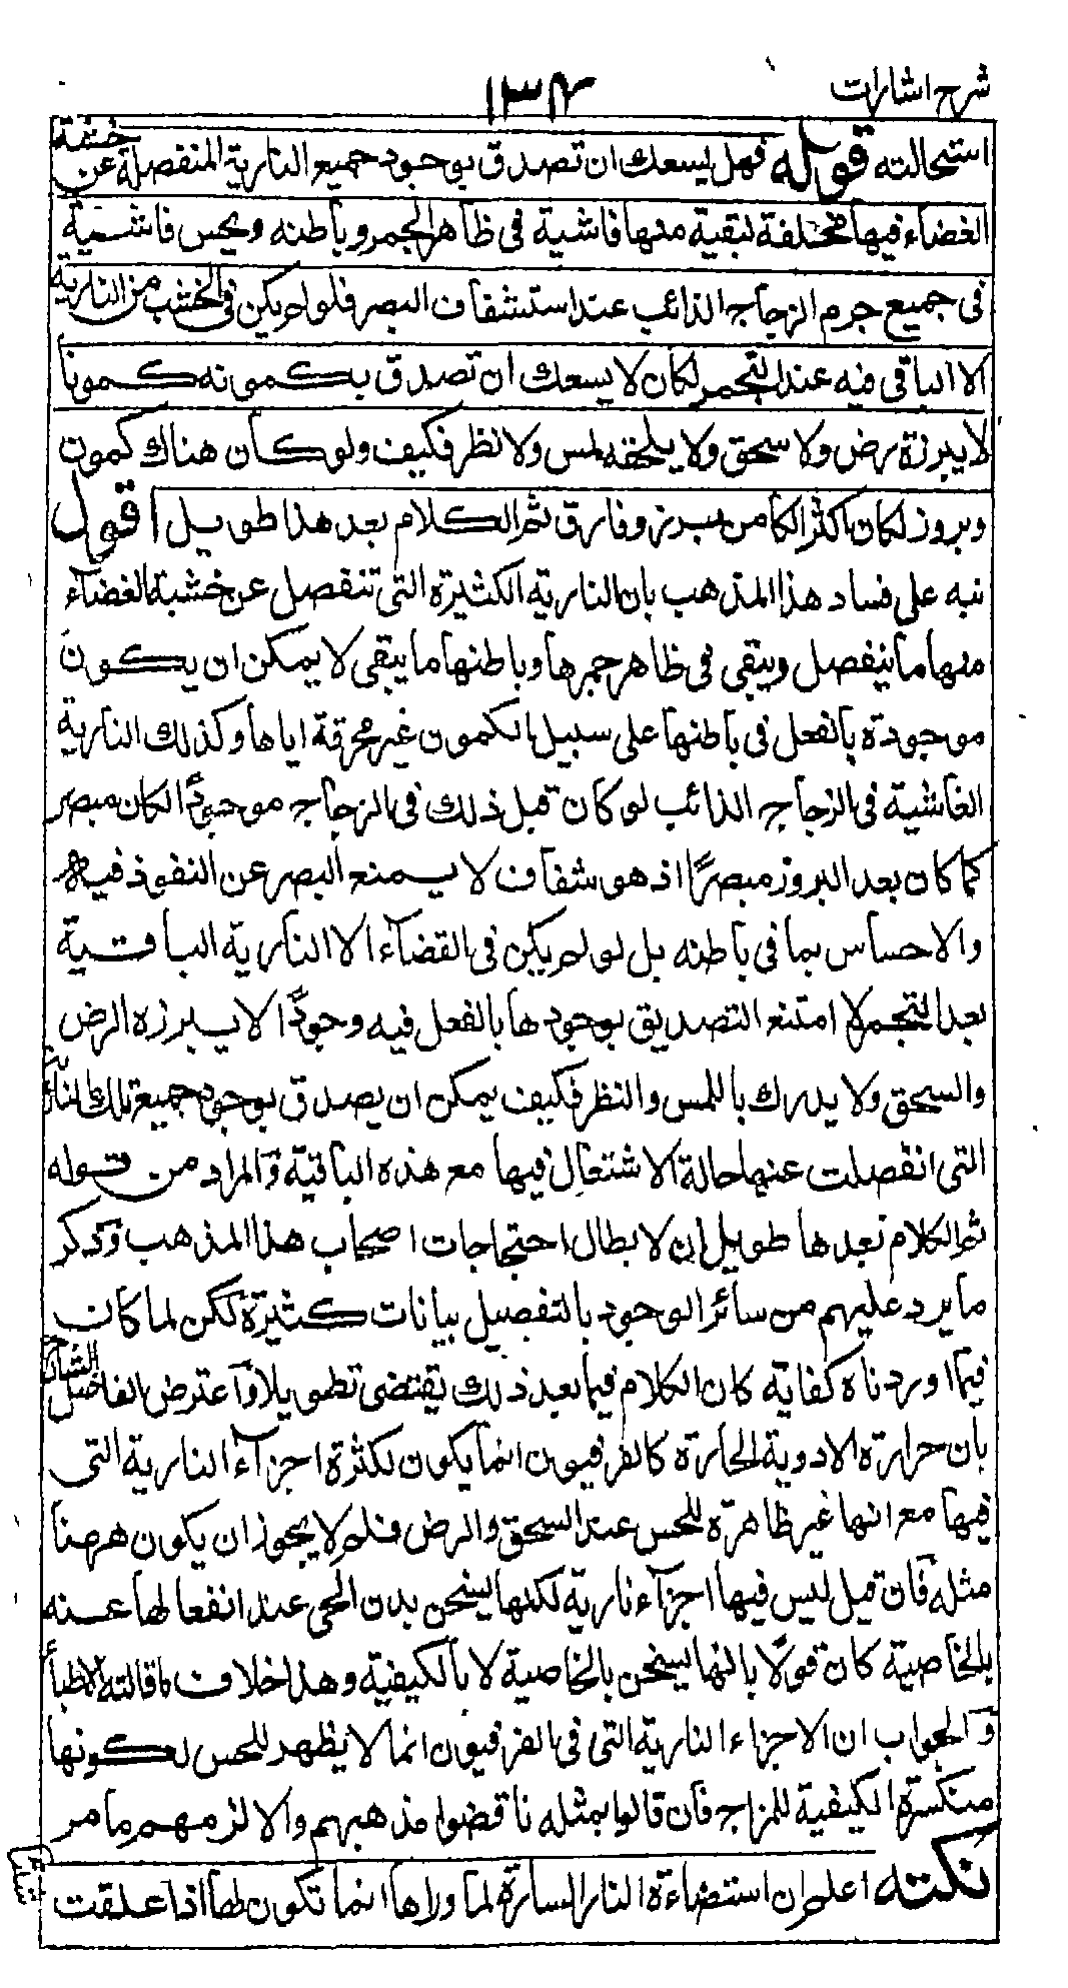 شرح اشارات
١٣٤
استحالته قوله فهل يسعك ان تصدق بوجود جميع النارية المنفصلة عن خشبة
الغضاء فيها مختلفة لبقية منها فاشية فى ظاهر الجمر وباطنه ويحس فاشية
فى جميع جرم الزجاج الذائب عند استشفاف البصر فلو لم يكن فى الخشب من النارية
الا الباقى فيه عند التجمر لكان لا يسعك ان تصدق بكمونه كمونا
لا يبرزه رض ولا سحق ولا يلحقه لمس ولا نظر فكيف ولو كان هناك كمون
وبروز لكان اكثر الكامن يبرز وفارق ثم الكلام بعد هذا طويل اقول
نبه على فساد هذا المذهب بان النارية الكثيرة التى تنفصل عن خشبة الغضاء
منها ما ينفصل ويبقى فى ظاهر جمرها وباطنها ما يبقى لا يمكن ان يكون
موجودة بالفعل فى باطنها على سبيل الكمون غير محرقة اياها وكذلك النارية
الفاشية فى الزجاج الذائب لو كان قبل ذلك فى الزجاج موجودًا لكان مبصر
كما كان بعد البروز مبصرًا اذ هو شفاف لا يمنع البصر عن النفوذ فيه
والاحساس بما فى باطنه بل لو لم يكن فى القضاء الا النارية الباقية
بعد التجمر لا امتنع التصديق بوجودها بالفعل فيه وجودًا لا يبرزه الرض
والسحق ولا يدرك باللمس والنظر فكيف يمكن ان يصدق بوجود جميع تلك النارية
التى انفصلت عنها حالة الاشتعال فيها مع هذه الباقية والمراد من قوله
ثم الكلام بعدها طويل ان لابطال احتجاجات اصحاب هذا المذهب وذكر
ما يرد عليهم من سائر الوجود بالتفصيل بيانات كثيرة لكن لما كان
فيما اوردناه كفاية كان الكلام فيما بعد ذلك يقتضى تطويلا واعترض الفاضل الشارح
بان حرارة الادوية الحارة كالفرفيون انما يكون لكثرة اجزاء النارية التى
فيها مع انها غير ظاهرة للحس عند السحق والرض فلم لا يجوز ان يكون ههنا
مثله فان قيل ليس فيها اجزاء نارية لكنها يسخن بدن الحى عند انفعالها عنه
بالخاصية كان قولًا بانها يسخن بالخاصية لا بالكيفية وهذا خلاف ما قالته الاطباء
والجواب ان الاجزاء النارية التى فى الفرفيون انما لا يظهر للحس لكونها
منكسرة الكيفية للمزاج فان قالوا بمثله ناقضوا مذهبهم والا لزمهم ما مر
نكته اعلم ان استضاءة النار الساترة لما وراها انما تكون لها اذا علقت